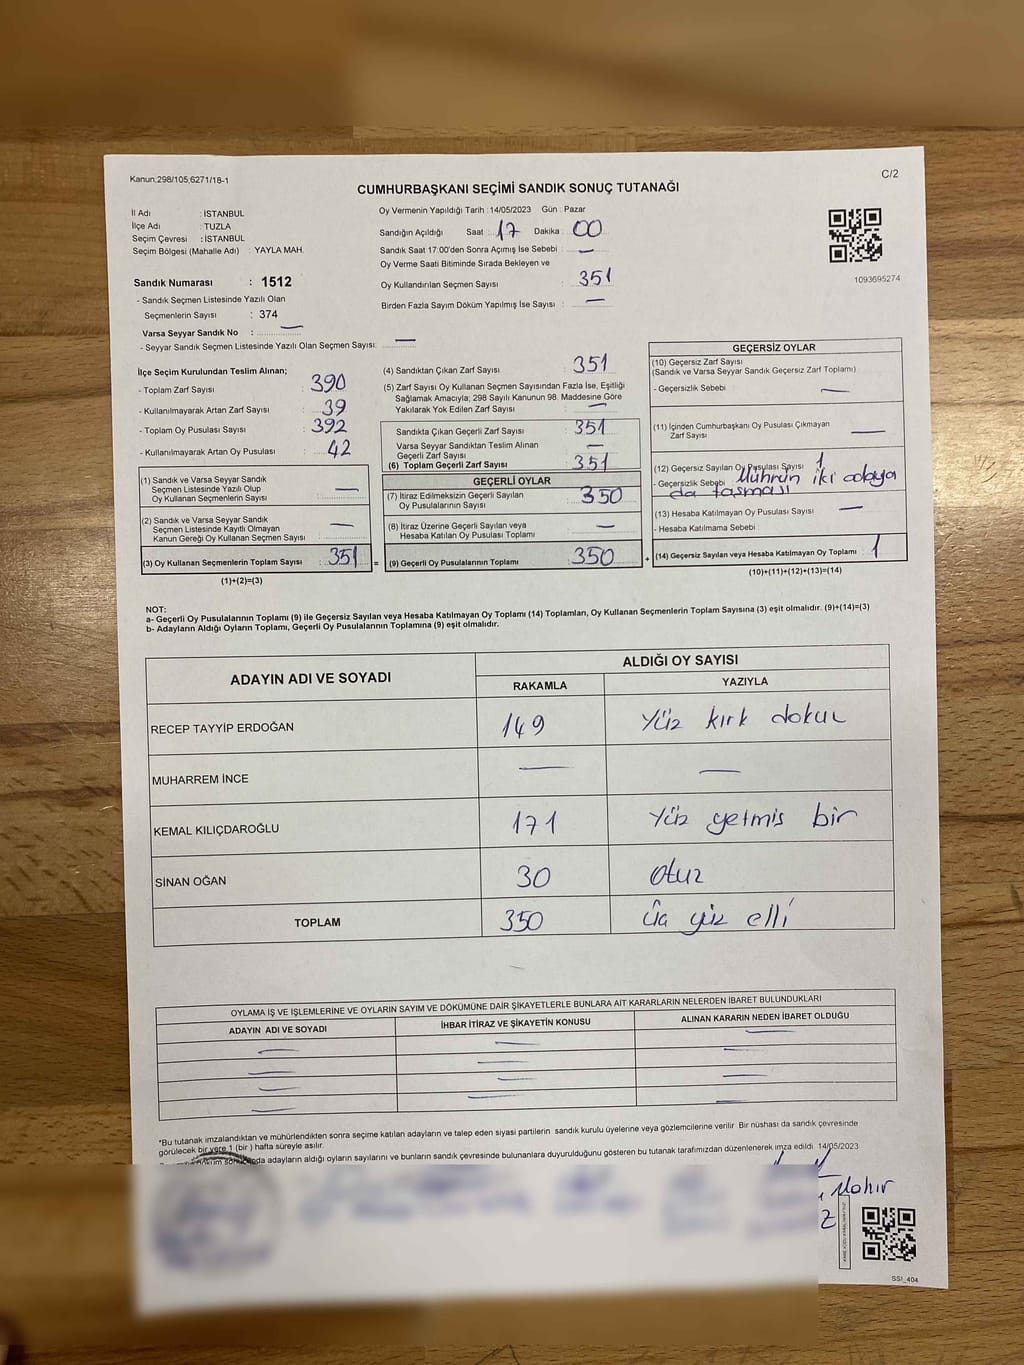 Kanun:298/105,6271/18-1
C/2
CUMHURBAŞKANI SEÇİMİ SANDIK SONUÇ TUTANAĞI
İl Adı : İSTANBUL
İlçe Adı : TUZLA
Seçim Çevresi : İSTANBUL
Seçim Bölgesi (Mahalle Adı) : YAYLA MAH.
Sandık Numarası : 1512
- Sandık Seçmen Listesinde Yazılı Olan
Seçmenlerin Sayısı : 374
Varsa Seyyar Sandık No : —
- Seyyar Sandık Seçmen Listesinde Yazılı Olan Seçmen Sayısı: —
Oy Vermenin Yapıldığı Tarih : 14/05/2023 Gün : Pazar
Sandığın Açıldığı Saat : 17 Dakika : 00
Sandık Saat 17:00'den Sonra Açımış İse Sebebi : —
Oy Verme Saati Bitiminde Sırada Bekleyen ve
Oy Kullandırılan Seçmen Sayısı : 351
Birden Fazla Sayım Döküm Yapılmış İse Sayısı : —
1093695274
İlçe Seçim Kurulundan Teslim Alınan;
- Toplam Zarf Sayısı : 390
- Kullanılmayarak Artan Zarf Sayısı : 39
- Toplam Oy Pusulası Sayısı : 392
- Kullanılmayarak Artan Oy Pusulası : 42
(1) Sandık ve Varsa Seyyar Sandık
Seçmen Listesinde Yazılı Olup
Oy Kullanan Seçmenlerin Sayısı : —
(2) Sandık ve Varsa Seyyar Sandık
Seçmen Listesinde Kayıtlı Olmayan
Kanun Gereği Oy Kullanan Seçmen Sayısı : —
(3) Oy Kullanan Seçmenlerin Toplam Sayısı : 351 =
(1)+(2)=(3)
(4) Sandıktan Çıkan Zarf Sayısı : 351
(5) Zarf Sayısı Oy Kullanan Seçmen Sayısından Fazla İse, Eşitliği
Sağlamak Amacıyla; 298 Sayılı Kanunun 98. Maddesine Göre
Yakılarak Yok Edilen Zarf Sayısı : —
Sandıkta Çıkan Geçerli Zarf Sayısı : 351
Varsa Seyyar Sandıktan Teslim Alınan
Geçerli Zarf Sayısı : —
(6) Toplam Geçerli Zarf Sayısı : 351
GEÇERLİ OYLAR
(7) İtiraz Edilmeksizin Geçerli Sayılan
Oy Pusulalarının Sayısı : 350
(8) İtiraz Üzerine Geçerli Sayılan veya
Hesaba Katılan Oy Pusulası Toplamı : —
(9) Geçerli Oy Pusulalarının Toplamı : 350 +
GEÇERSİZ OYLAR
(10) Geçersiz Zarf Sayısı
(Sandık ve Varsa Seyyar Sandık Geçersiz Zarf Toplamı)
- Geçersizlik Sebebi : —
(11) İçinden Cumhurbaşkanı Oy Pusulası Çıkmayan
Zarf Sayısı : —
(12) Geçersiz Sayılan Oy Pusulası Sayısı : 1
- Geçersizlik Sebebi : Mührün iki adaya
da taşması
(13) Hesaba Katılmayan Oy Pusulası Sayısı : —
- Hesaba Katılmama Sebebi :
(14) Geçersiz Sayılan veya Hesaba Katılmayan Oy Toplamı : 1
(10)+(11)+(12)+(13)=(14)
NOT:
a- Geçerli Oy Pusulalarının Toplamı (9) ile Geçersiz Sayılan veya Hesaba Katılmayan Oy Toplamı (14) Toplamları, Oy Kullanan Seçmenlerin Toplam Sayısına (3) eşit olmalıdır. (9)+(14)=(3)
b- Adayların Aldığı Oyların Toplamı, Geçerli Oy Pusulalarının Toplamına (9) eşit olmalıdır.
ADAYIN ADI VE SOYADI ALDIĞI OY SAYISI
RAKAMLA YAZIYLA
RECEP TAYYİP ERDOĞAN 149 Yüz kırk dokuz
MUHARREM İNCE — —
KEMAL KILIÇDAROĞLU 171 Yüz yetmiş bir
SİNAN OĞAN 30 Otuz
TOPLAM 350 Üç yüz elli
OYLAMA İŞ VE İŞLEMLERİNE VE OYLARIN SAYIM VE DÖKÜMÜNE DAİR ŞİKAYETLERLE BUNLARA AİT KARARLARIN NELERDEN İBARET BULUNDUKLARI
ADAYIN ADI VE SOYADI İHBAR İTİRAZ VE ŞİKAYETİN KONUSU ALINAN KARARIN NEDEN İBARET OLDUĞU
— — —
— — —
— — —
— — —
*Bu tutanak imzalandıktan ve mühürlendikten sonra seçime katılan adayların ve talep eden siyasi partilerin sandık kurulu üyelerine veya gözlemcilerine verilir. Bir nüshası da sandık çevresinde
görülecek bir yere 1 (bir ) hafta süreyle asılır.
adayların aldığı oyların sayılarını ve bunların sandık çevresinde bulunanlara duyurulduğunu gösteren bu tutanak tarafımızdan düzenlenerek imza edildi. 14/05/2023
Mahir
SSİ_404